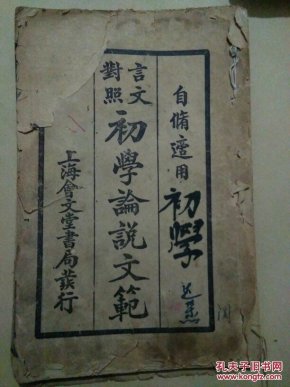 自脩適用
初學
言文
對照
初學論說文範
上海會文堂書局發行
孔夫子旧书网